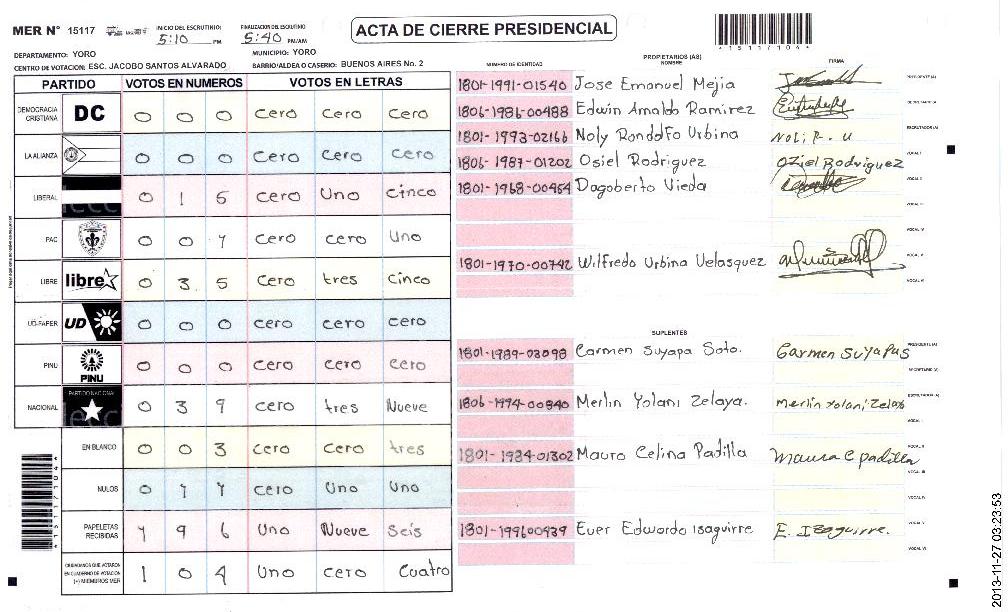 MER Nº 15117 INICIO DEL ESCRUTINIO: 5:10 PM FINALIZACION DEL ESCRUTINIO 5:40 PM/AM
ACTA DE CIERRE PRESIDENCIAL
4151171064
DEPARTAMENTO: YORO MUNICIPIO: YORO
CENTRO DE VOTACION: ESC. JACOBO SANTOS ALVARADO BARRIO/ALDEA O CASERIO: BUENOS AIRES No. 2
PARTIDO VOTOS EN NUMEROS VOTOS EN LETRAS
DEMOCRACIA CRISTIANA DC 0 0 0 cero cero cero
LA ALIANZA 0 0 0 cero cero cero
LIBERAL 0 1 5 cero Uno cinco
PAC 0 0 1 cero cero Uno
LIBRE libre 0 3 5 cero tres cinco
UD-FAPER UD 0 0 0 cero cero cero
PINU PINU 0 0 0 cero cero cero
NACIONAL PARTIDO NACIONAL 0 3 9 cero tres Nueve
EN BLANCO 0 0 3 cero cero tres
NULOS 0 1 1 cero Uno Uno
PAPELETAS RECIBIDAS 1 9 6 Uno Nueve Seis
CIUDADANOS QUE VOTARON EN CUADERNO DE VOTACION (+) MIEMBROS MER 1 0 4 Uno cero Cuatro
NÚMERO DE IDENTIDAD PROPIETARIOS (AS) NOMBRE FIRMA
1801-1991-01540 Jose Emanuel Mejia PRESIDENTE (A)
1806-1986-00488 Edwin Arnaldo Ramirez SECRETARIO (A)
1801-1993-02166 Noly Rondolfo Urbina Noli R. U ESCRUTADOR (A)
1806-1987-01202 Osiel Rodriguez OZiel Rodriguez VOCAL I
1801-1968-00464 Dagoberto Vieda VOCAL II
VOCAL III
VOCAL IV
1801-1970-00742 Wilfredo Urbina Velasquez VOCAL V
VOCAL VI
SUPLENTES
1801-1989-03098 Carmen Suyapa Soto. Carmen Suyapas PRESIDENTE (A)
SECRETARIO (A)
1806-1994-00840 Merlin Yolani Zelaya. merlin Yolani Zelaya ESCRUTADOR (A)
VOCAL I
1801-1984-01302 Mauro Celina Padilla Maura C padilla VOCAL II
VOCAL III
VOCAL IV
1801-199600939 Euer Edwardo Isaguirre E. ISaguirre. VOCAL V
VOCAL VI
4151171064
2013-11-27 03:23:53